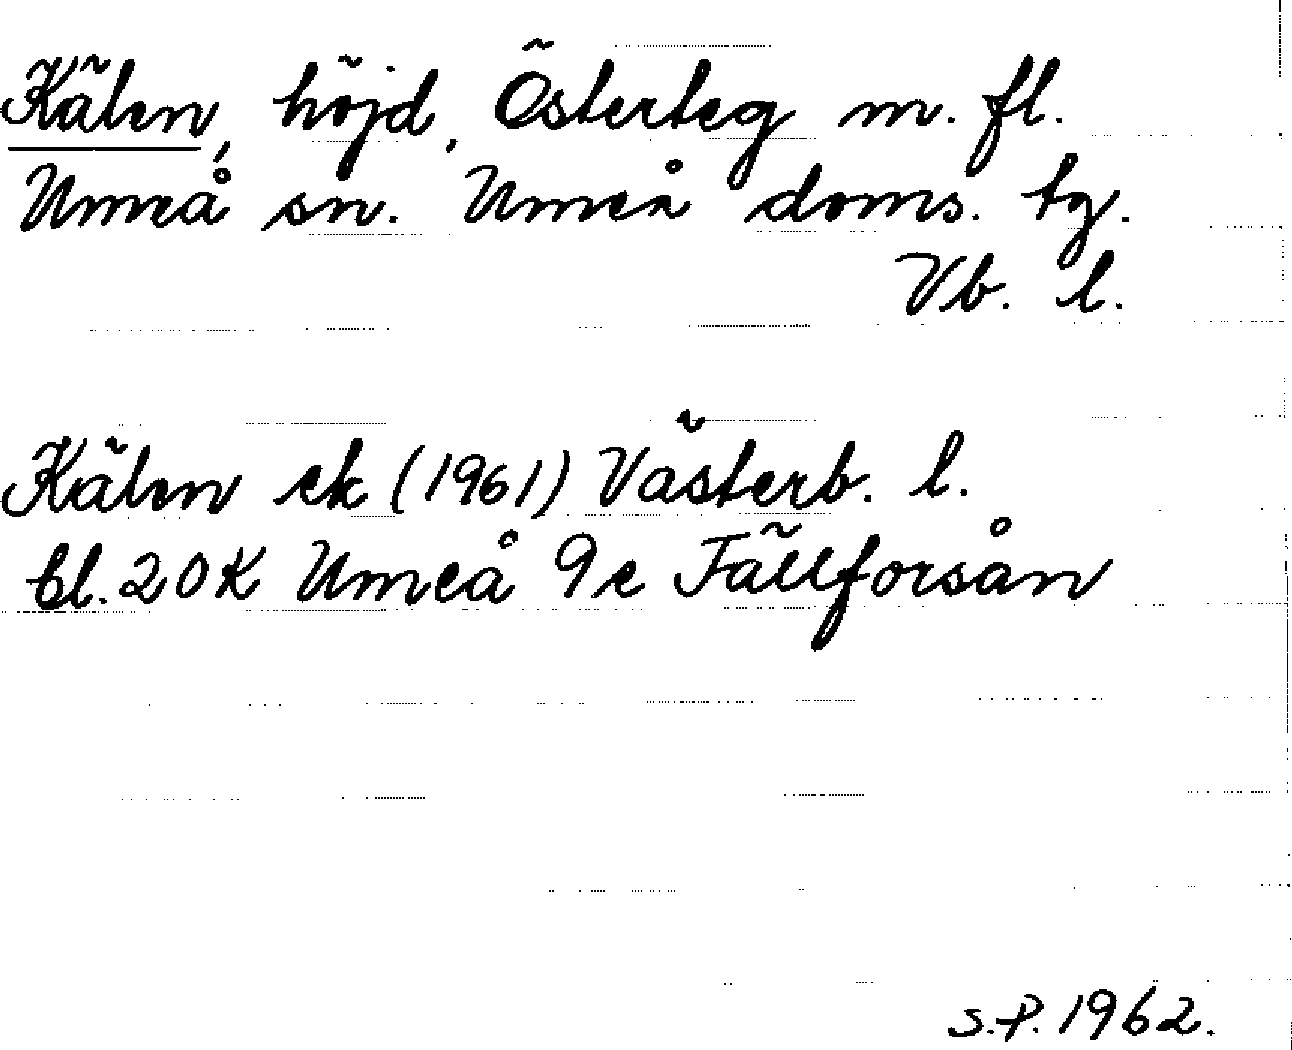 Kälen, höjd, Österteg m. fl.
Umeå sn. Umeå doms. tg.
Vb. l.
Kälen ek (1961) Västerb. l.
bl. 20K Umeå 9c Fällforsån
S.P. 1962.